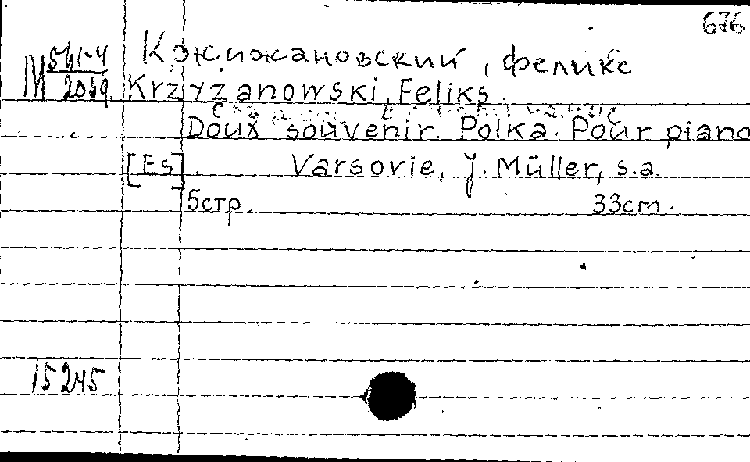 676
Кржижановский, Феликс
М 561-4
2059 Krzyzanowski, Feliks
Doux souvenir. Polka. Pour piano
[Es] Varsovie, J. Müller, s.a.
5стр. 33cm.
15245